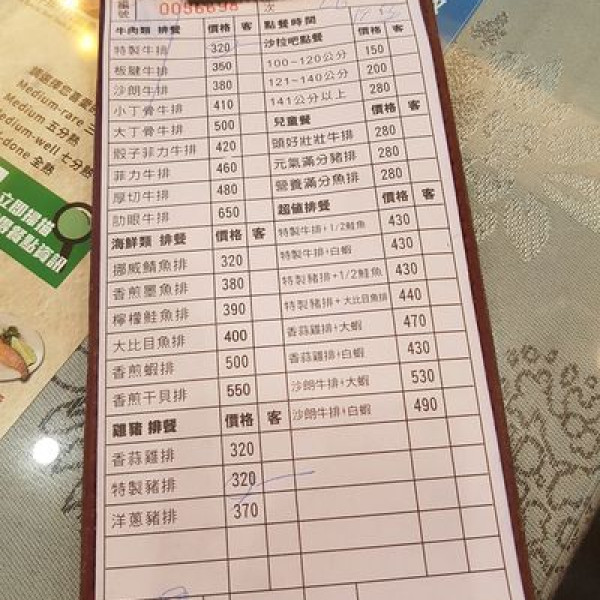 編號 0056898 次
牛肉類 排餐 價格 客
特製牛排 320
板腱牛排 350
沙朗牛排 380
小丁骨牛排 410
大丁骨牛排 500
骰子菲力牛排 420
菲力牛排 460
厚切牛排 480
肋眼牛排 650
海鮮類 排餐 價格 客
挪威鯖魚排 320
香煎墨魚排 380
檸檬鮭魚排 390
大比目魚排 400
香煎蝦排 500
香煎干貝排 550
雞豬 排餐 價格 客
香蒜雞排 320
特製豬排 320
洋蔥豬排 370
點餐時間
沙拉吧點餐
100~120公分 150
121~140公分 200
141公分以上 280
兒童餐 價格 客
頭好壯壯牛排 280
元氣滿分豬排 280
營養滿分魚排 280
超值排餐 價格 客
特製牛排+1/2鮭魚 430
特製牛排+白蝦 430
特製豬排+1/2鮭魚 430
特製豬排+大比目魚排 440
香蒜雞排+大蝦 470
香蒜雞排+白蝦 430
沙朗牛排+大蝦 530
沙朗牛排+白蝦 490
Medium-rare 三
Medium 五分熟
Medium-well 七分熟
-done 全熟
立即掃描
餐點資訊